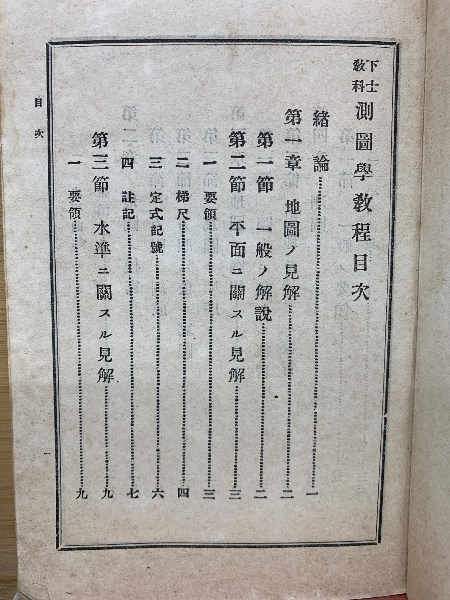 下士教科 測圖學敎程目次
緒論 一
第一章 地圖ノ見解 二
第一節 一般ノ解說 二
第二節 平面ニ關スル見解 三
一 要領 三
二 梯尺 四
三 定式記號 六
四 註記 七
第三節 水準ニ關スル見解 九
一 要領 九
目次
一